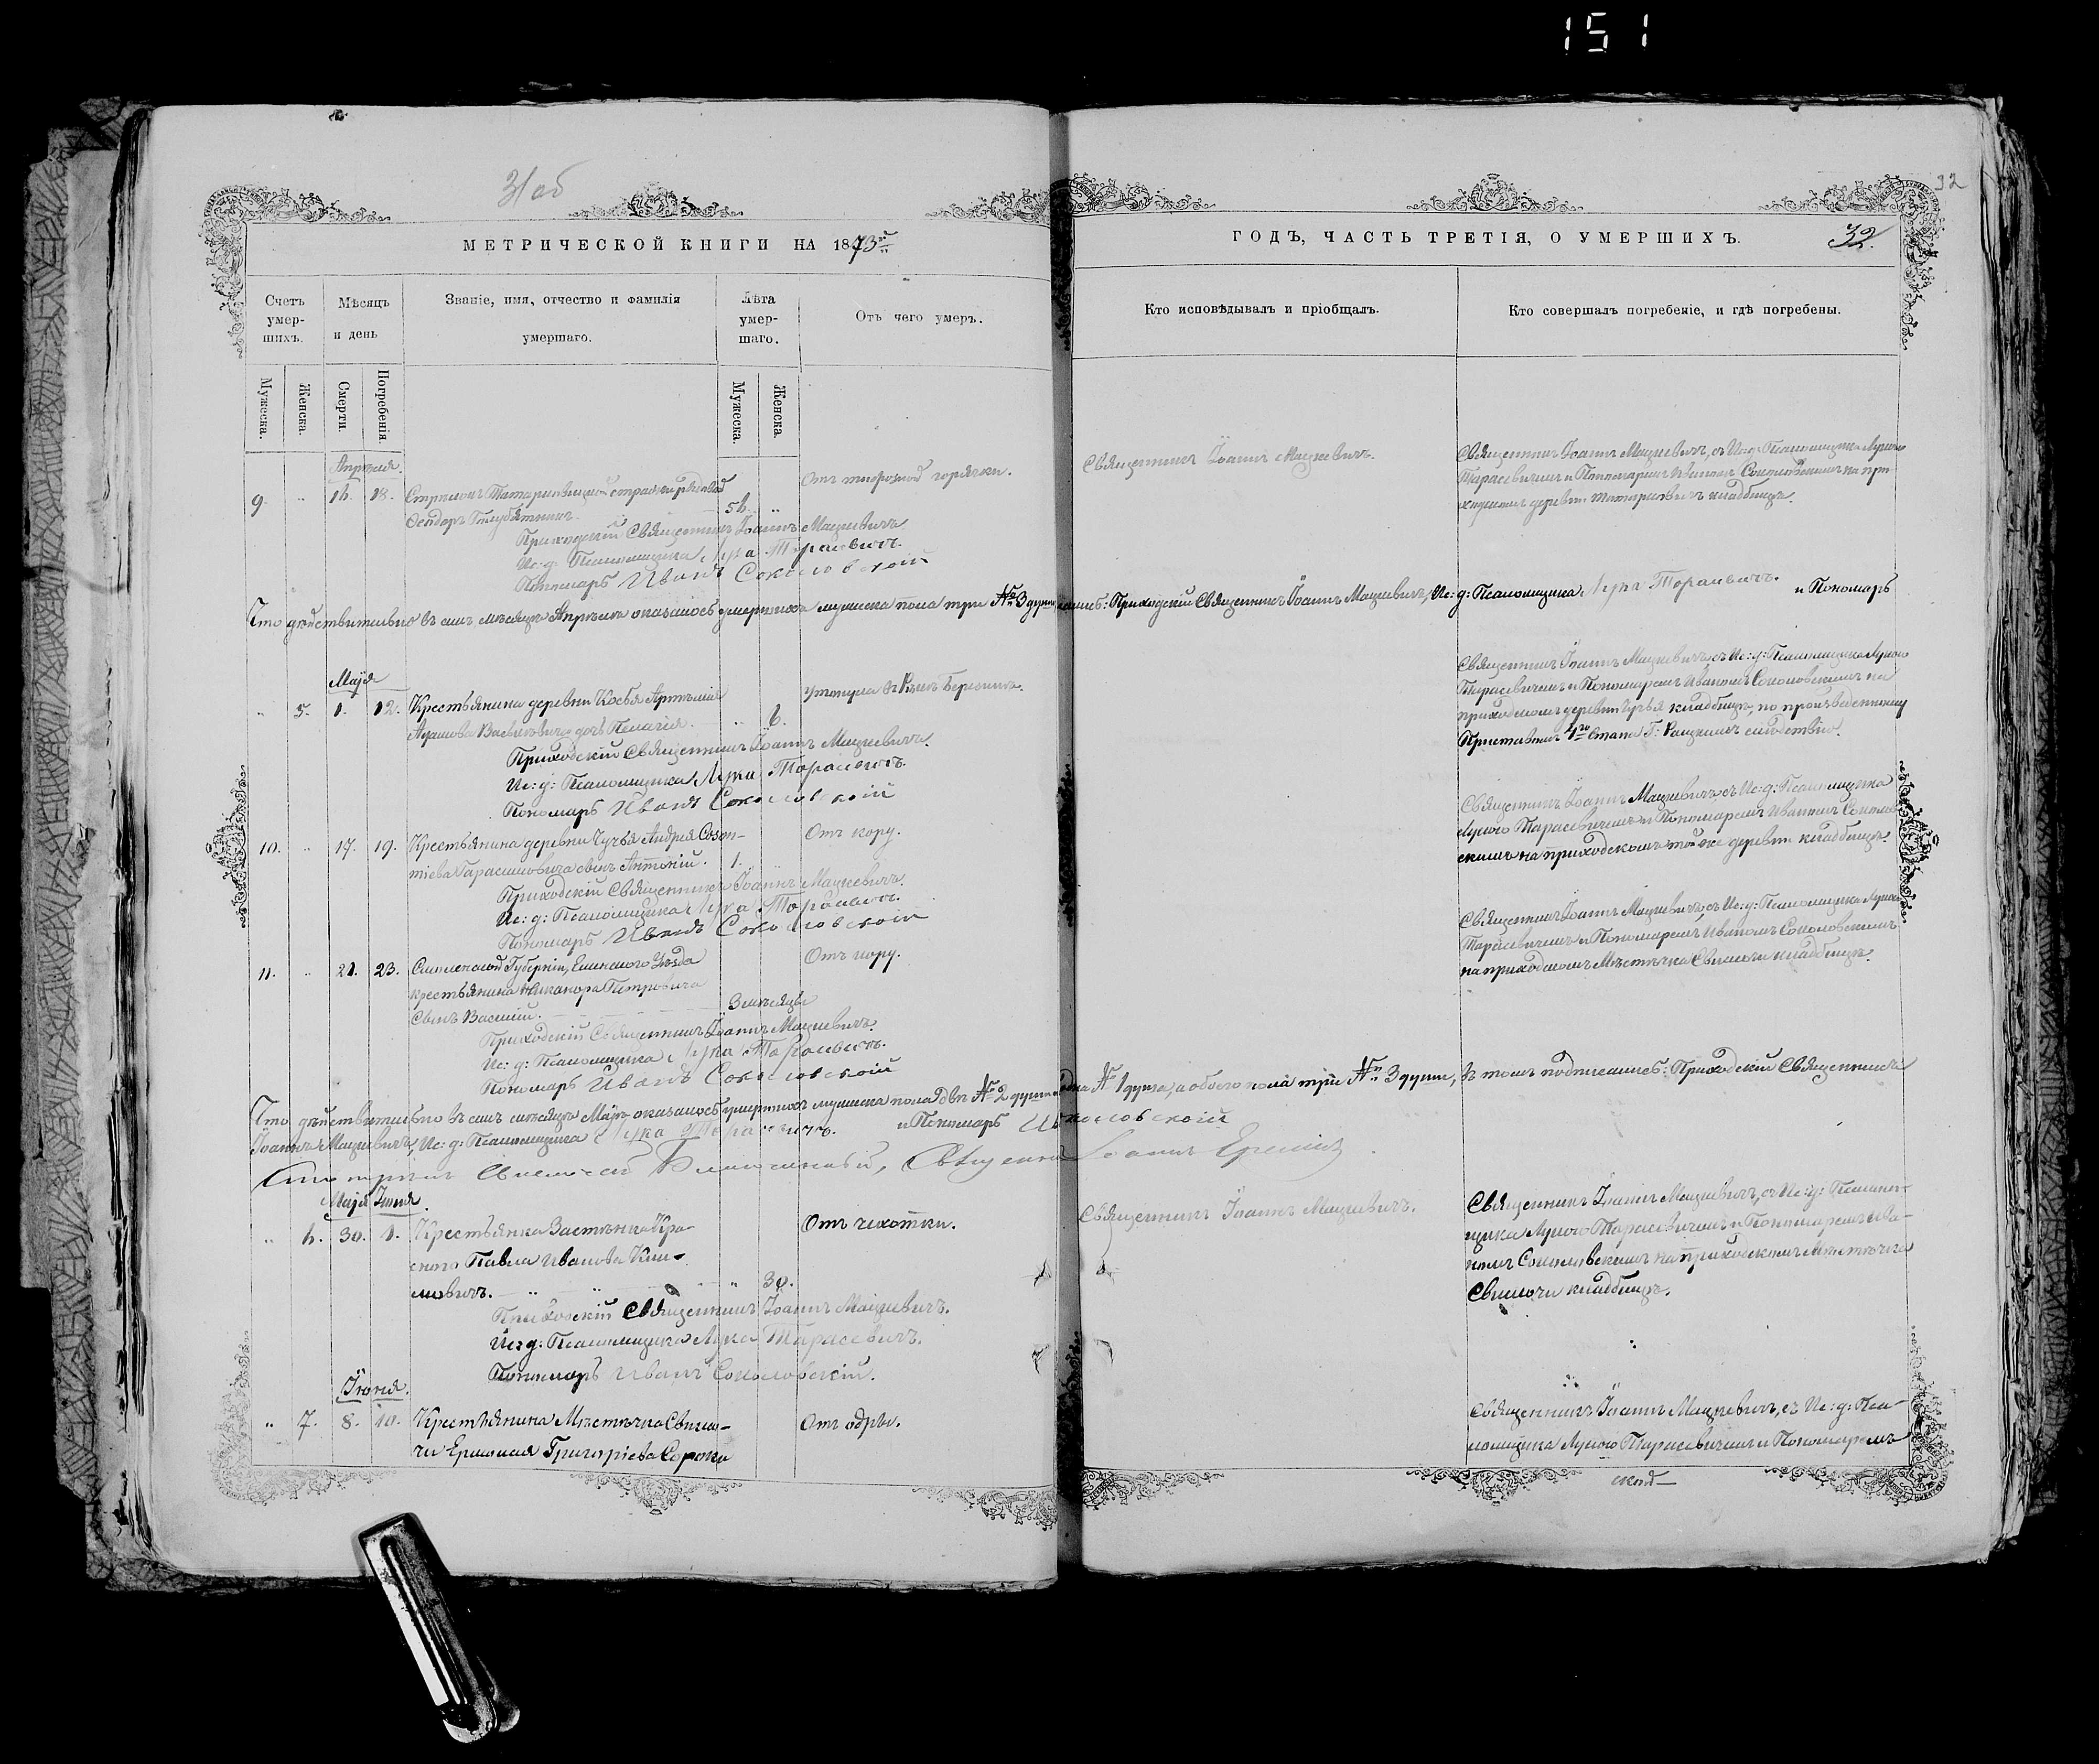 151
31 об
32
МЕТРИЧЕСКОЙ КНИГИ НА 1873й
ГОДЪ, ЧАСТЬ ТРЕТІЯ, О УМЕРШИХЪ.
32.
Счетъ умер-шихъ.
Мѣсяцъ и день
Званіе, имя, отчество и фамилія умершаго.
Лѣта умер-шаго.
Отъ чего умеръ.
Кто исповѣдывалъ и пріобщалъ.
Кто совершалъ погребеніе, и гдѣ погребены.
Мужеска.
Женска.
Смерти.
Погребенія.
Мужеска.
Женска.
Апрѣля.
9. " 16. 18.
56. "
Отъ тифозной горячки.
Священникъ Іоаннъ Мацкевичъ.
Священникъ Іоаннъ Мацкевичъ, съ Ис: д: Псаломщика Лукою
Тарасевичемъ и Пономаремъ Иваномъ Соколовскимъ на при-
ходскомъ деревни кладбищѣ.
Приходскій Священникъ Іоаннъ Мацкевичъ
Ис: д: Псаломщика Лука Тарасевичъ.
Пономарь Иванъ Соколовский
Что дѣйствительно въ семъ мѣсяцѣ Апрѣлѣ оказалось умершихъ мужеска пола три № 3 души Приходскій Священникъ Іоаннъ Мацкевичъ, Ис: д: Псаломщика Лука Тарасевичъ. и Пономарь
Маія
" 5. 1. 12. Крестьянина деревни Артемія
дочь Пелагія. " 6.
утонула въ Рѣкѣ Березинѣ.
Священникъ Іоаннъ Мацкевичъ, съ Ис: д: Псаломщика Лукою
Тарасевичемъ и Пономаремъ Иваномъ Соколовскимъ на
приходскомъ деревни кладбищѣ, по произведенному
Приставомъ 1го Стана Г: слѣдствію.
Приходскій Священникъ Іоаннъ Мацкевичъ.
Ис: д: Псаломщика Лука Тарасевичъ.
Пономарь Иванъ Соколовский
10. " 17. 19. Крестьянина деревни Андрея Созон-
тіева Гарасимовича сынъ Антоній. 1.
Отъ кору.
Священникъ Іоаннъ Мацкевичъ, съ Ис: д: Псаломщика
Лукою Тарасевичемъ и Пономаремъ Иваномъ Соколов-
скимъ на приходскомъ той же деревни кладбищѣ.
Приходскій Священникъ Іоаннъ Мацкевичъ.
Ис: д: Псаломщика Лука Тарасевичъ.
Пономарь Иванъ Соколовский
11. " 21. 23. Смоленской Губерніи, Уѣзда
крестьянина Никанора Петровича
Сынъ Василій. 3 мѣсяца
Отъ кору.
Священникъ Іоаннъ Мацкевичъ, съ Ис: д: Псаломщика Лукою
Тарасевичемъ и Пономаремъ Иваномъ Соколовскимъ
на приходскомъ Мѣстечка Свислочи кладбищѣ.
Приходскій Священникъ Іоаннъ Мацкевичъ.
Ис: д: Псаломщика Лука Тарасевичъ.
Пономарь Иванъ Соколовский
Что дѣйствительно въ семъ мѣсяцѣ Маіѣ оказалось умершихъ мужеска пола двѣ № 2 души № 1 душа, а обоего пола три № 3 души, въ томъ подписались: Приходскій Священникъ
Іоаннъ Мацкевичъ, Ис: д: Псаломщика Лука Тарасевичъ. и Пономарь Соколовский
Благочинный, Священникъ Іоаннъ
Маія Іюня.
" 6. 30. 1. Крестьянка Застѣнка Кра-
снаго Павла Иванова Кли-
мовичъ. " 30.
Отъ чихотки.
Священникъ Іоаннъ Мацкевичъ.
Священникъ Іоаннъ Мацкевичъ, съ Ис: д: Псалом-
щика Лукою Тарасевичемъ и Пономаремъ Ива-
номъ Соколовскимъ на приходскомъ Мѣстечка
Свислочи кладбищѣ.
Приходскій Священникъ Іоаннъ Мацкевичъ.
Ис: д: Псаломщика Лука Тарасевичъ.
Пономарь Иванъ Соколовскій.
Іюня.
" 7. 8. 10. Крестьянина Мѣстечка Свисло-
чи Ермолая Григоріева Сороки
Отъ одры.
Священникъ Іоаннъ Мацкевичъ, съ Ис: д: Пса-
ломщика Лукою Тарасевичемъ и Пономаремъ